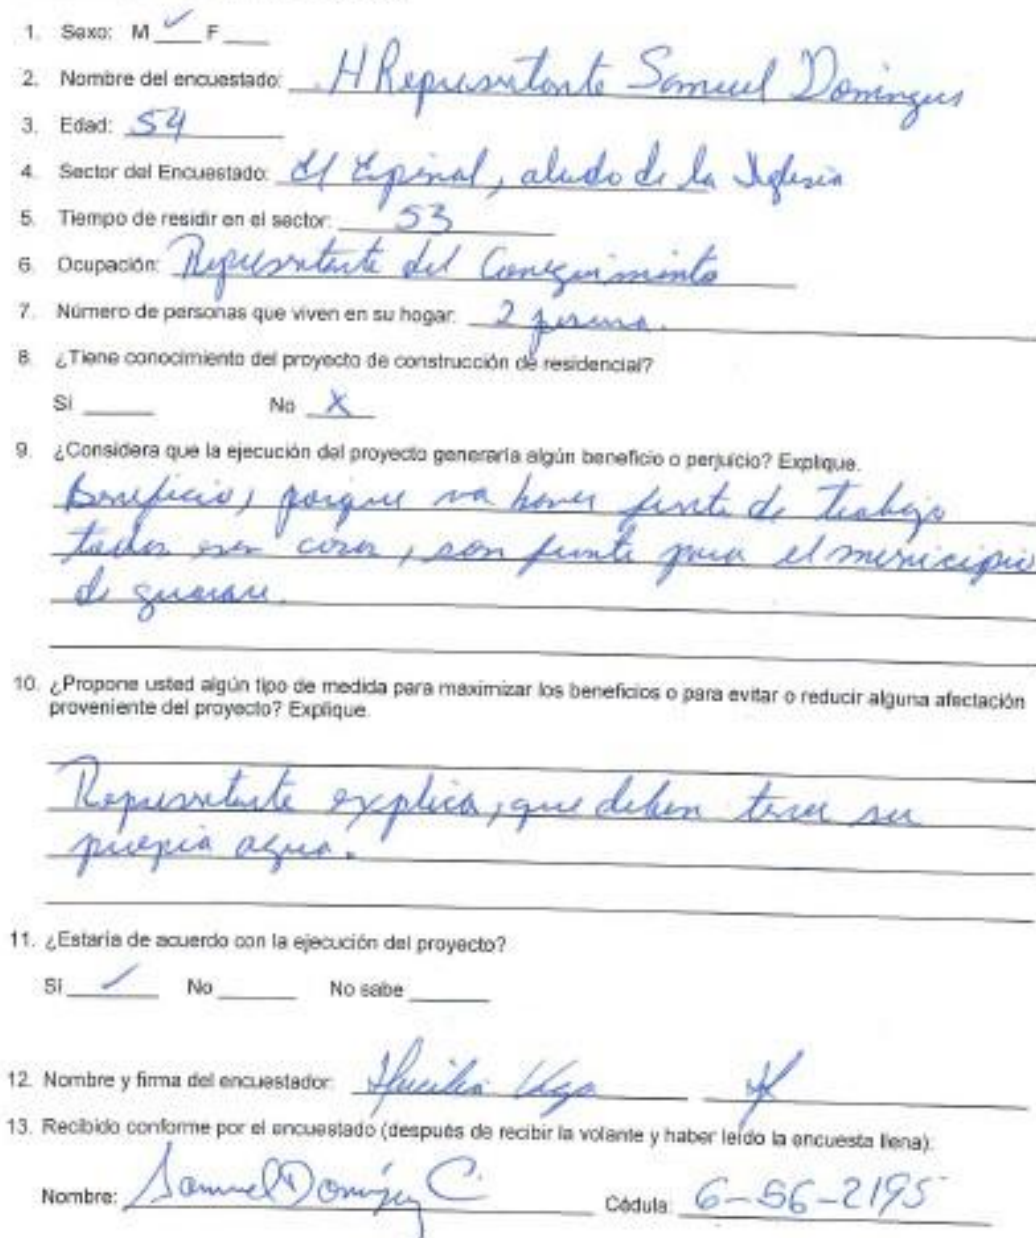 1. Sexo: M ✓ F
2. Nombre del encuestado: H Representante Samuel Domingues
3. Edad: 54
4. Sector del Encuestado: El Espinal, alado de la Iglesia
5. Tiempo de residir en el sector: 53
6. Ocupación: Representante del Corregimiento
7. Número de personas que viven en su hogar: 2 persona.
8. ¿Tiene conocimiento del proyecto de construcción de residencial?
Sí No X
9. ¿Considera que la ejecución del proyecto generaría algún beneficio o perjuicio? Explique.
Beneficio, porque va haver fuente de trabajo
todos esas cosas, son fuente para el municipio
de guarare.
10. ¿Propone usted algún tipo de medida para maximizar los beneficios o para evitar o reducir alguna afectación
proveniente del proyecto? Explique.
Representante explica, que deben tener su
propia agua.
11. ¿Estaría de acuerdo con la ejecución del proyecto?
Sí ✓ No No sabe
12. Nombre y firma del encuestador:
13. Recibido conforme por el encuestado (después de recibir la volante y haber leído la encuesta llena):
Nombre: Samuel Domínguez C. Cédula: 6-56-2195